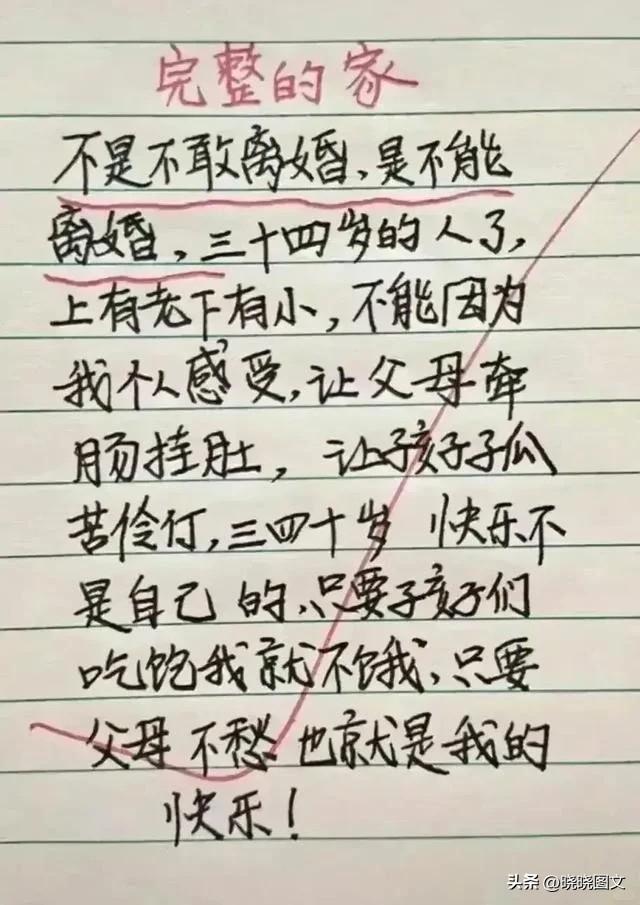 完整的家
不是不敢离婚、是不能
离婚，三十四岁的人了，
上有老下有小，不能因为
我个人感受，让父母牵
肠挂肚，让孩子孤
苦伶仃，三四十岁 快乐不
是自己的、只要孩子们
吃饱我就不饿、只要
父母不愁也就是我的
快乐！
头条 @晓晓图文